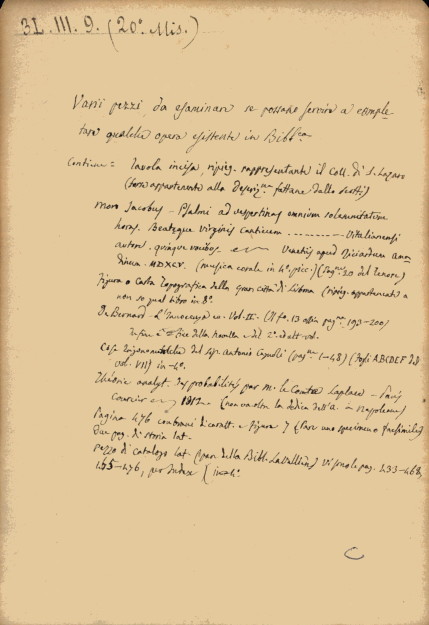 3L. III. 9. (20º. Mis.)
Varii pezzi, da esaminare se possano servire a comple-
tare qualche opera esistente in Bibl.ca
Contiene = Tavola incisa, ripieg. rappresentante il Coll. di S. Lazaro
(forse appartenente alla fattane dallo Scotti)
Moro Jacobus - Psalmi ad vespertinas omnium solemnitatum
horas. Beataeque Virginis Canticum Vitalianensi
autore quinque vocibus Venetiis apud Ricciardum
MDXCV. (musica corale in 4º. picc.) (pag. 20 del Tenore)
Figura o Carta topografica della gran città di Lisbona (ripieg. appartenente a
non so qual libro in 8º.
De Bernard - Vol. II. (Il fo. 13 ossia pag. 193-200)
della e del 2º. vol.
del Sig. Antonio Cagnoli (pag. 1-48) (Fogli ABCDEF del
vol. VII) in 4º.
Théorie analyt. des probabilités par M. le Comte Laplace - Paris
Courcier 1812 (non avvi la dedica dell'A. a Napoleone)
Pagina 476 e Figure 7 (pare uno specimen o facsimile)
Due pag. di storia lat.
Pezzo di Catalogo lat. (pare della Bibl. LaVallière) Vi sono le pag. 433-468,
475-476, per Index
C